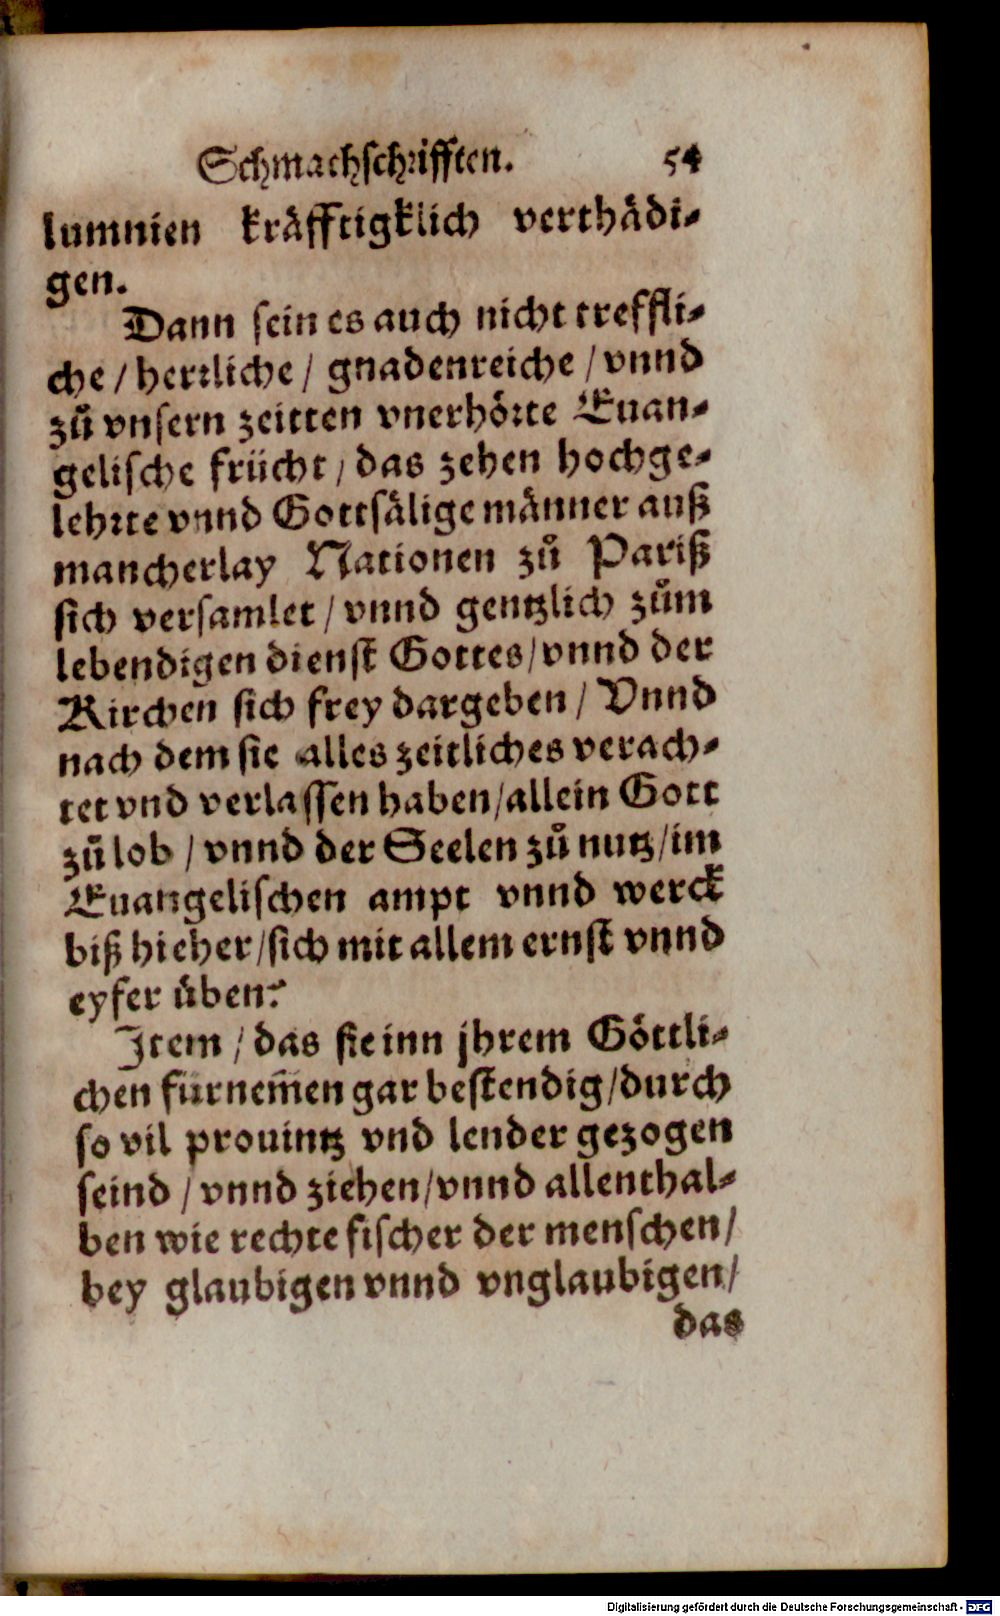 Schmachschrifften. 54
lumnien kräfftigklich verthädi-
gen.
Dann sein es auch nicht treffli-
che / herrliche / gnadenreiche / vnnd
zů vnsern zeitten vnerhörte Euan-
gelische frücht / das zehen hochge-
lehrte vnnd Gottsälige männer auß
mancherlay Nationen zů Pariß
sich versamlet / vnnd gentzlich zům
lebendigen dienst Gottes / vnnd der
Kirchen sich frey dargeben / Vnnd
nach dem sie alles zeitliches verach-
tet vnd verlassen haben / allein Gott
zů lob / vnnd der Seelen zů nutz / im
Euangelischen ampt vnnd werck
biß hieher / sich mit allem ernst vnnd
eyfer üben?
Item / das sie inn jhrem Göttli-
chen fürnem̃en gar bestendig / durch
so vil prouintz vnd lender gezogen
seind / vnnd ziehen / vnnd allenthal-
ben wie rechte fischer der menschen /
bey glaubigen vnnd vnglaubigen /
das
Digitalisierung gefördert durch die Deutsche Forschungsgemeinschaft - DFG